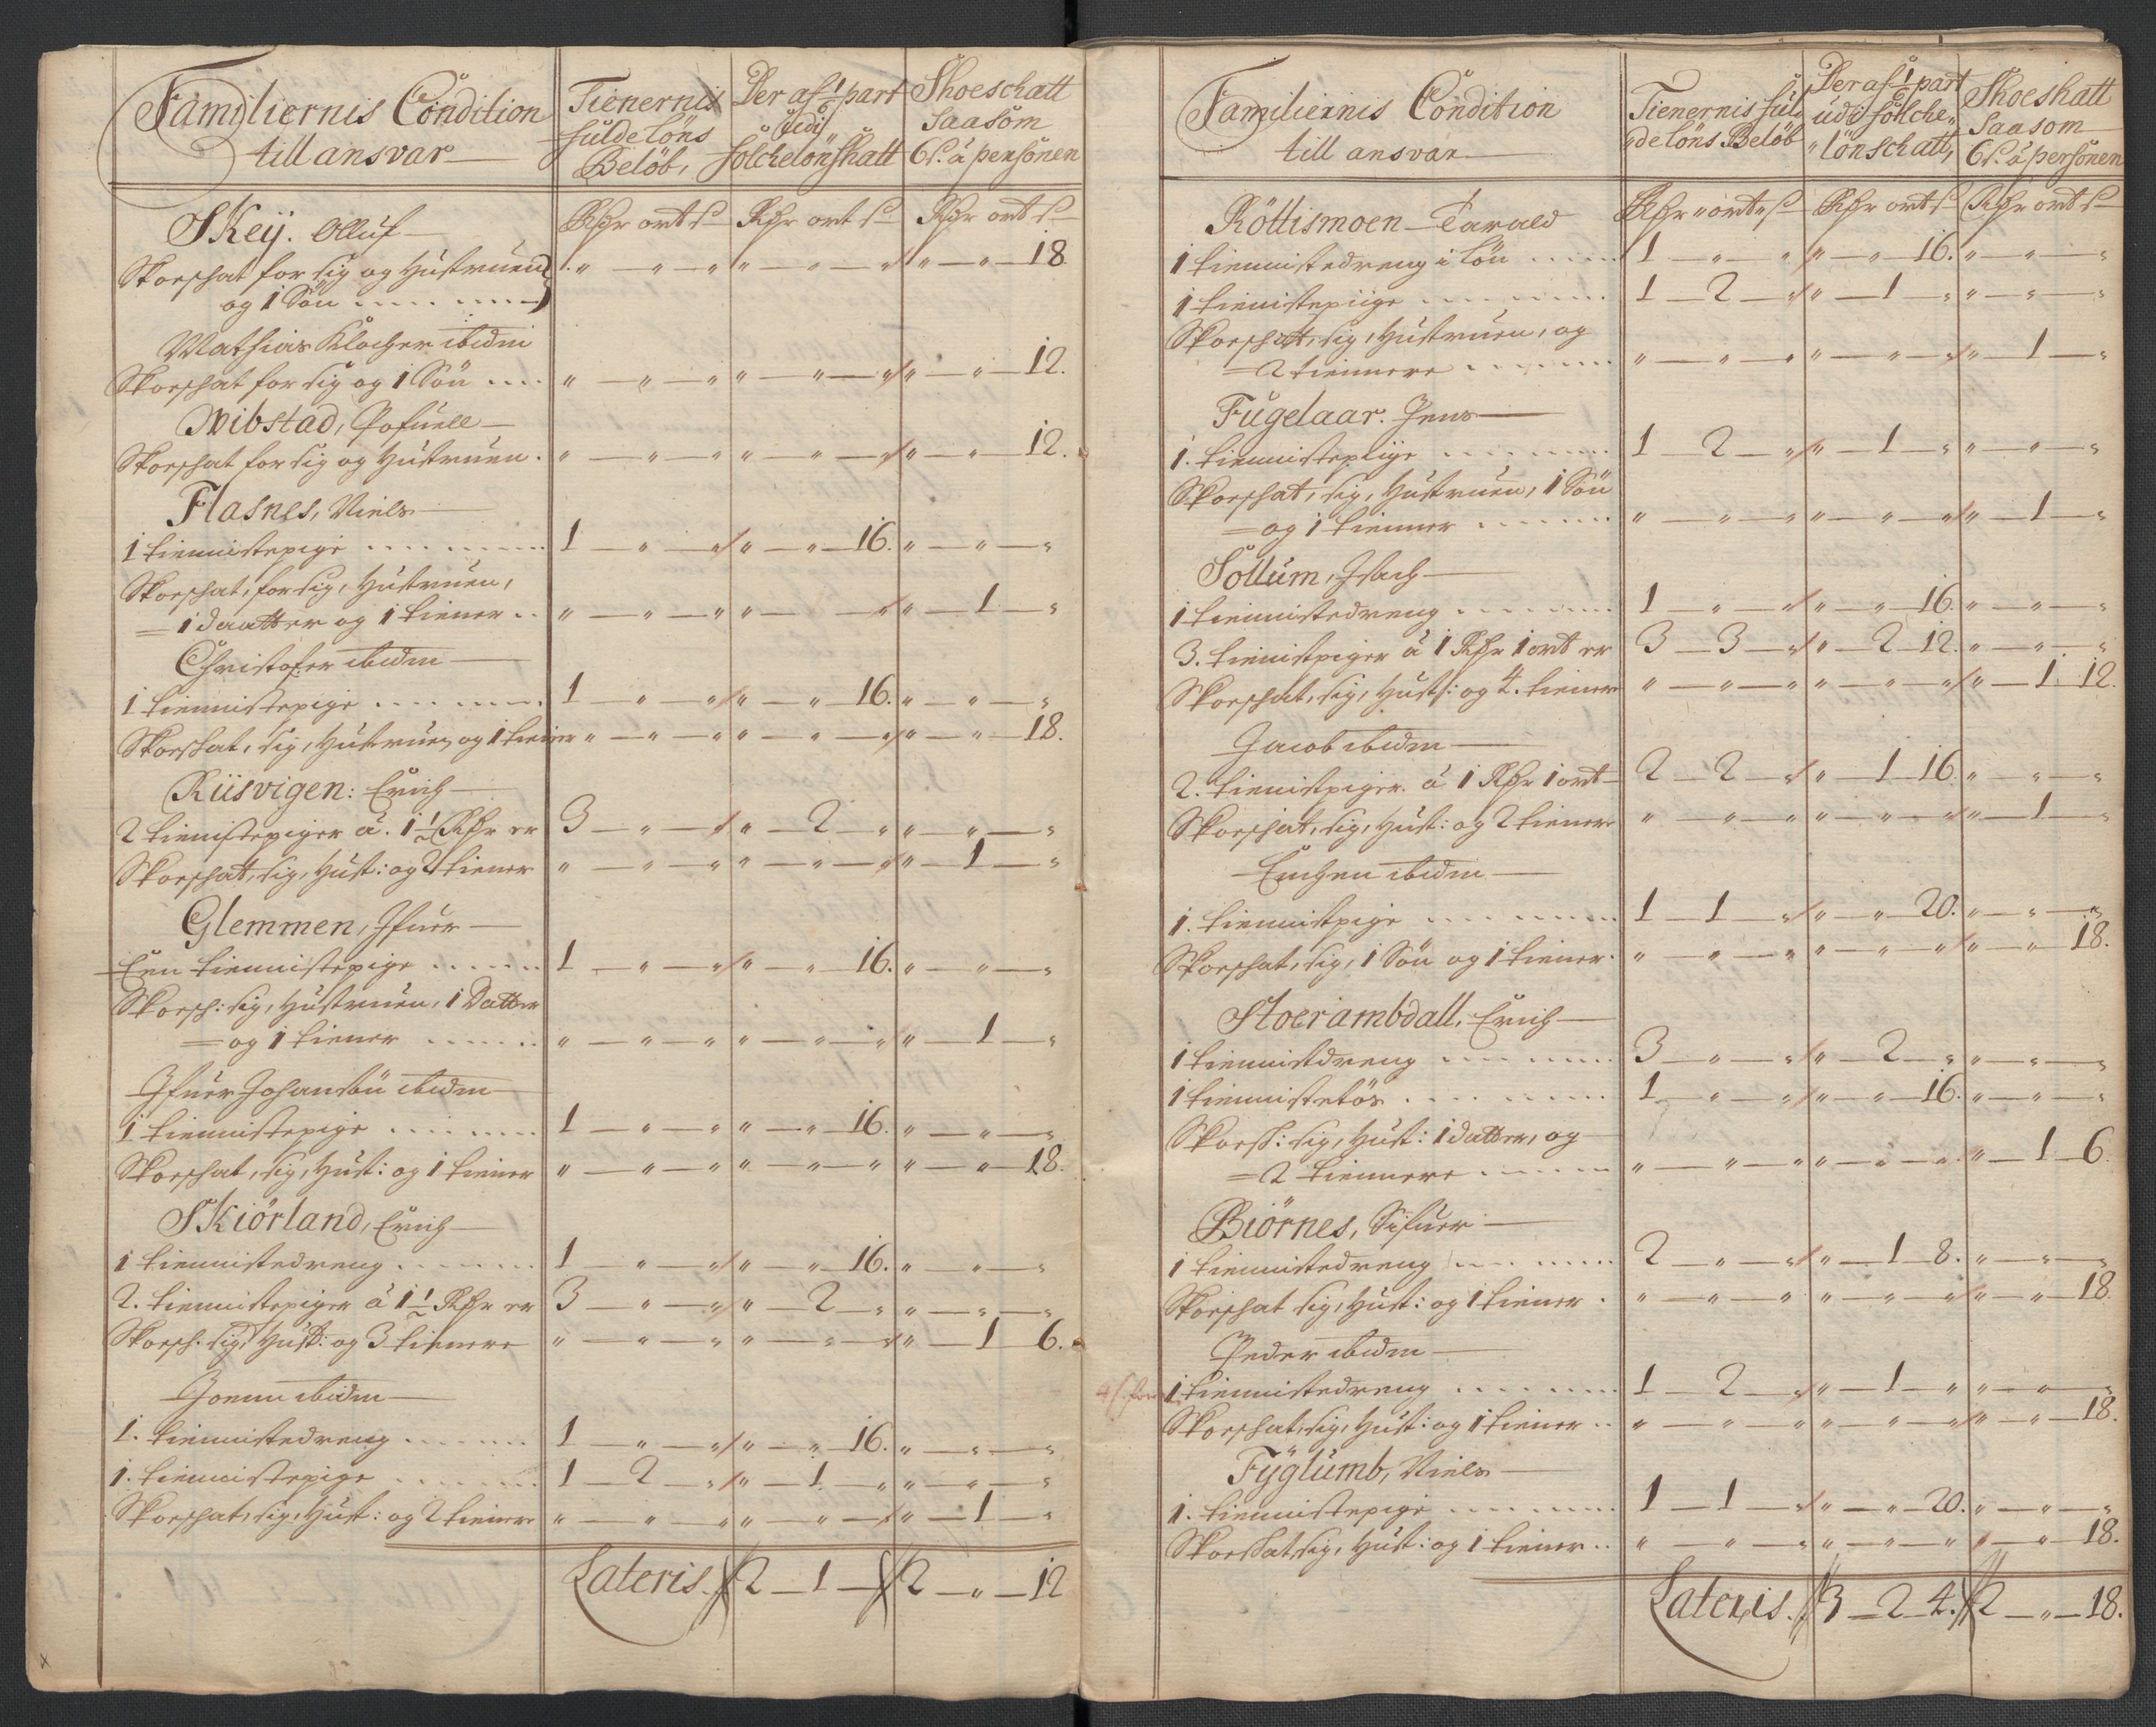 Familiernis Condition
till ansvar
Tienernis
fulde löns
Belöb,
Der af 1/6 part
udj
folchelönskatt
Skoeschatt
Saasom
6 s. á persönen
SKeij. Olluf
Rdr ort s
Rdr ort s
Rdr ort s
Skoeschat for sig og Hustruen
og 1 Sön " — " — " " — " — " " — " — 18
Mathias Klocher ibidm
Skoeschat for sig og 1 Sön " — " — " " — " — " " — " — 12.
Wibstad, Pofuell
Skoeschat for sig og Hustruen. " — " — " " — " — " " — " — 12.
Flasnes, Niels
1 tiennistepige 1 — " — " " — " — 16. " — " — "
Skoeschat, for sig, Hustruen,
= 1 daatter og 1 tiener " — " — " " — " " — 1 — "
Christofer ibidm
1 tiennistepige 1 — " — " " — " — 16. " — " — "
Skoeschat, sig, Hustruen og 1 tiener " — " — " " — " — " " — " — 18.
Riisvigen: Erich
2 tienistepiger á. 1 1/2 Rdr er 3 — " — " " — 2 — " " — " — "
Skoeschat, sig, Hust: og 2 tiener " — " — " " — " — " " — 1 — "
Glemmen, Ifuer
Een tiennistepige 1 — " — " " — " — 16. " — " — "
Skoesch: sig, Hustruen, 1 Datter
= og 1 tiener " — " — " " — " — " " — 1 — "
Ifuer Johansön ibidm
1 tiennistepige 1 — " — " " — " — 16. " — " — "
Skoeschat, sig, Hust: og 1 tiener " — " — " " — " — " " — " — 18.
SKiörland, Erich
1 tiennistedreng 1 — " — " " — " — 16. " — " — "
2. tiennistepiger á 1 1/2 Rdr er 3 — " — " " — 2 — " " — " — "
Skoesch: sig, Hust: og 3 tienere " — " — " " — " — " " — 1 — 6.
Joenn ibidm
1. tiennistedreng 1 — " — " " — " — 16. " — " — "
1. tiennistepige 1 — 2 — " " — 1 — " " — " — "
Skoeschat, sig, Hust: og 2 tiener " — " — " " — " — " " — 1 — "
Lateris. 2 — 1 — 2 — " — 12
Familiernis Condition
till ansvar
Tienernis ful
de löns Belöb
Der af 1/6 part
udj folche
lönschatt,
Skoeskatt
Saasom
6 s. á persönen
Röttismoen — Tarald
Rdr ort s
Rdr ort s
Rdr ort s
1 tiennistedreng i lön 1 — " — " " — " — 16. " — " — "
1 tienistepiige 1 — 2 — " " — 1 — " " — " — "
Skoeschatt, sig, Hustruen, og
= 2 tiennere " — " — " " — " — " " — 1 — "
Fugelaar. Jens
1. tiennistepiige 1 — 2 — " " — 1 — " " — " — "
Skoeschat, sig, Hustruen, 1 Sön
= og 1 tienner " — " — " " — " — " " — 1 — "
Sollum, Isach
1 tiennistedreng 1 — " — " " — " — 16. " — " — "
3. tienistpiger á 1 Rdr 1 ort er 3 — 3 — " " — 2 — 12. " — " — "
Skoeschat, sig, Hust: og 4. tiener " — " — " " — " — " " — 1 — 12.
Jacob ibidm
2. tienistpiger. á 1 Rdr 1 ort 2 — 2 — " " — 1 — 16. " — " — "
Skoeschat, sig, Hust: og 2 tiener " — " — " " — " — " " — 1 — "
Enchen ibidm
1. tiennistpige 1 — 1 — " " — " — 20. " — " — "
Skoeschat, sig, 1 Sön og 1 tiener. " — " — " " — " — " " — " — 18.
Stoerambdall, Erich
1 tiennistdreng 3 — " — " " — 2 — " " — " — "
1 tiennistetös 1 — " — " " — " — 16. " — " — "
Skoesch: sig, Hust: 1 datter, og
= 2 tiennere " — " — " " — " — " " — 1 — 6
Biörnes, Sifuer
1 tiennistedreng 2 — " — " " — 1 — 8. " — " — "
Skoeschat sig, Hust: og 1 tiener. " — " — " " — " — " " — " — 18
Peder ibidm
1 tiennistedreng 1 — 2 — " " — 1 — " " — " — "
Skoeschat, sig, Hust: og 1 tiener " — " — " " — " — " " — " — 18.
Fyglumb, Niels
1. tiennistepige 1 — 1 — " " — " — 20. " — " — "
Skoeschat, sig, Hust: og 1 tiener " — " — " " — " — " " — " — 18.
Lateris. 3 — 2 — 4. 2 — " — 18.